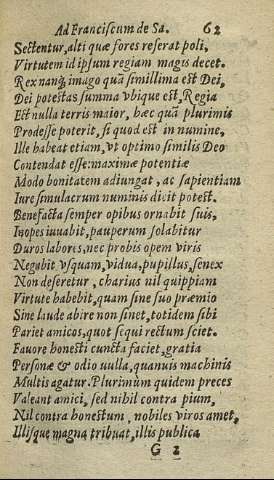 Ad Franciscum de Sa. 62
Sectentur, alti quæ fores reserat poli,
Virtutem id ipsum regiam magis decet.
Rex nanq; imago quā simillima est Dei,
Dei potestas summa vbique est, Regia
Est nulla terris maior, hæc quā plurimis
Prodesse poterit, si quod est in numine,
Ille habeat etiam, vt optimo similis Deo
Contendat esse: maximæ potentiæ
Modo bonitatem adiungat, ac sapientiam
Iure simulacrum numinis dicit potest.
Benefacta semper opibus ornabit suis,
Inopes iuuabit, pauperum solabitur
Duros labores, nec probis opem viris
Negabit vsquam, vidua, pupillus, senex
Non deseretur, charius nil quippiam
Virtute habebit, quam sine suo præmio
Sine laude abire non sinet, totidem sibi
Pariet amicos, quot sequi rectum sciet.
Fauore honesti cuncta faciet, gratia
Personæ & odio nulla, quanuis machinis
Multis agatur. Plurimùm quidem preces
Valeant amici, sed nihil contra pium,
Nil contra honestum, nobiles viros amet,
Illisque magna tribuat, illis publica
G 2